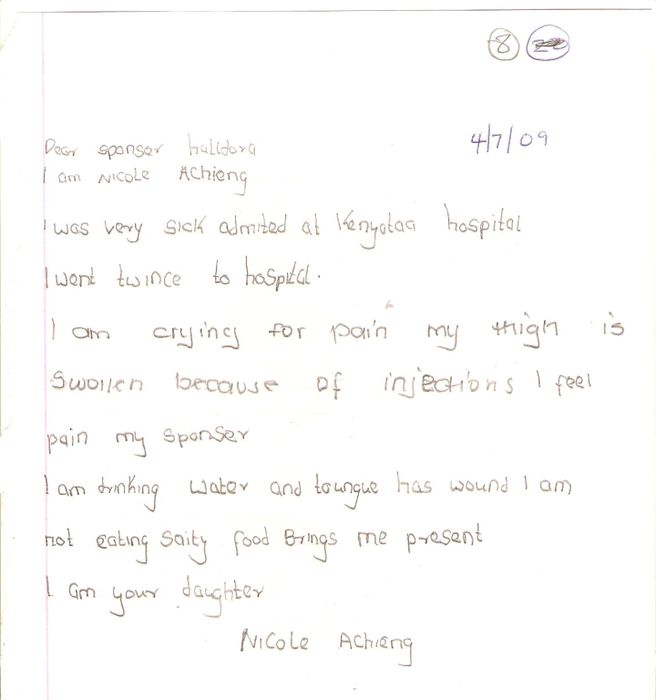 8
4/7/09
Dear sponser halldora
I am Nicole Achieng
I was very sick admited at Kenyataa hospital
I went twince to hospital.
I am crying for pain my thigh is
Swollen because of injections I feel
pain my sponser
I am drinking water and toungue has wound I am
not eating Salty food Brings me present
I am your daughter
Nicole Achieng